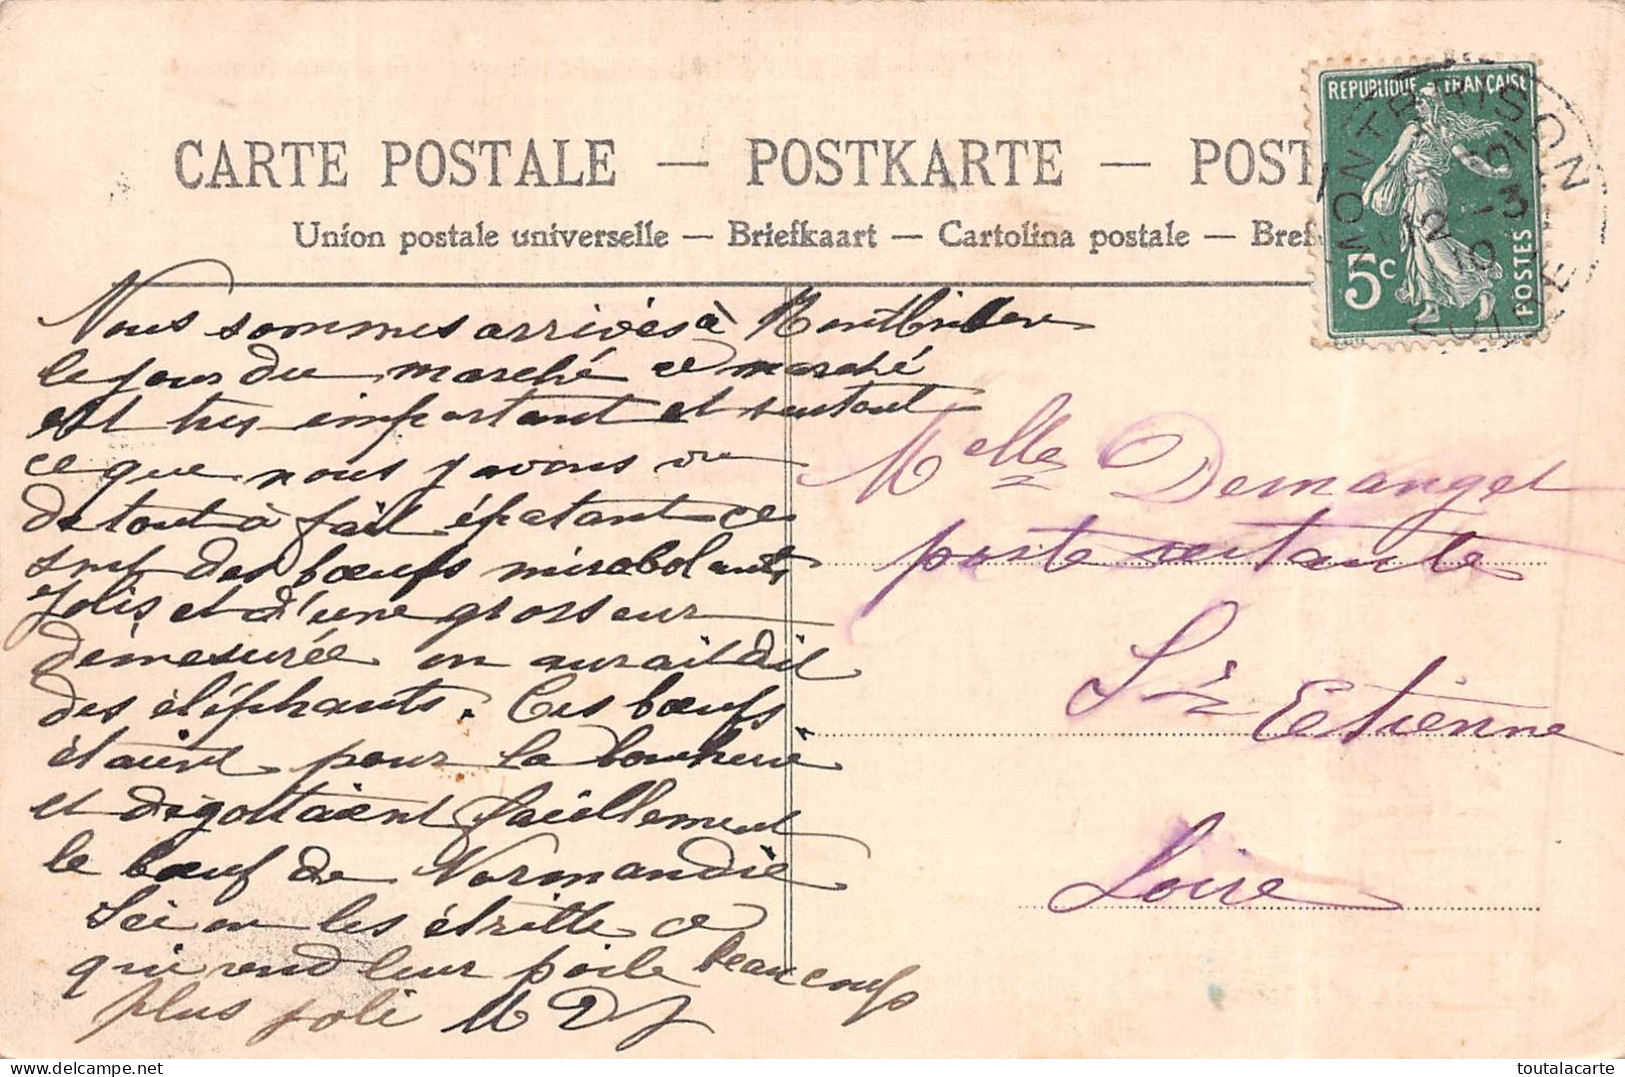 CARTE POSTALE — POSTKARTE — POST
Union postale universelle — Briefkaart — Cartolina postale — Bref
REPUBLIQUE FRANÇAISE
5c
POSTES
MONTBRISON
12 -3
10
LOIRE
Nous sommes arrivés à Montbrison
le jour du marché ce marché
est très important et surtout
ce que nous y avons vu
de tout à fait épatant ce
sont des bœufs mirabolants
Jolis et d'une grosseur
démesurée on aurait dit
des éléphants. Ces bœufs
étaient pour la boucherie
et dégottaient faciellement
le bœuf de Normandie
Ici on les étrille ce
qui rend leur poile beaucoup
plus joli M D J
Melle Demanget
poste restante
St Etienne
Loire
www.delcampe.net
toutalacarte